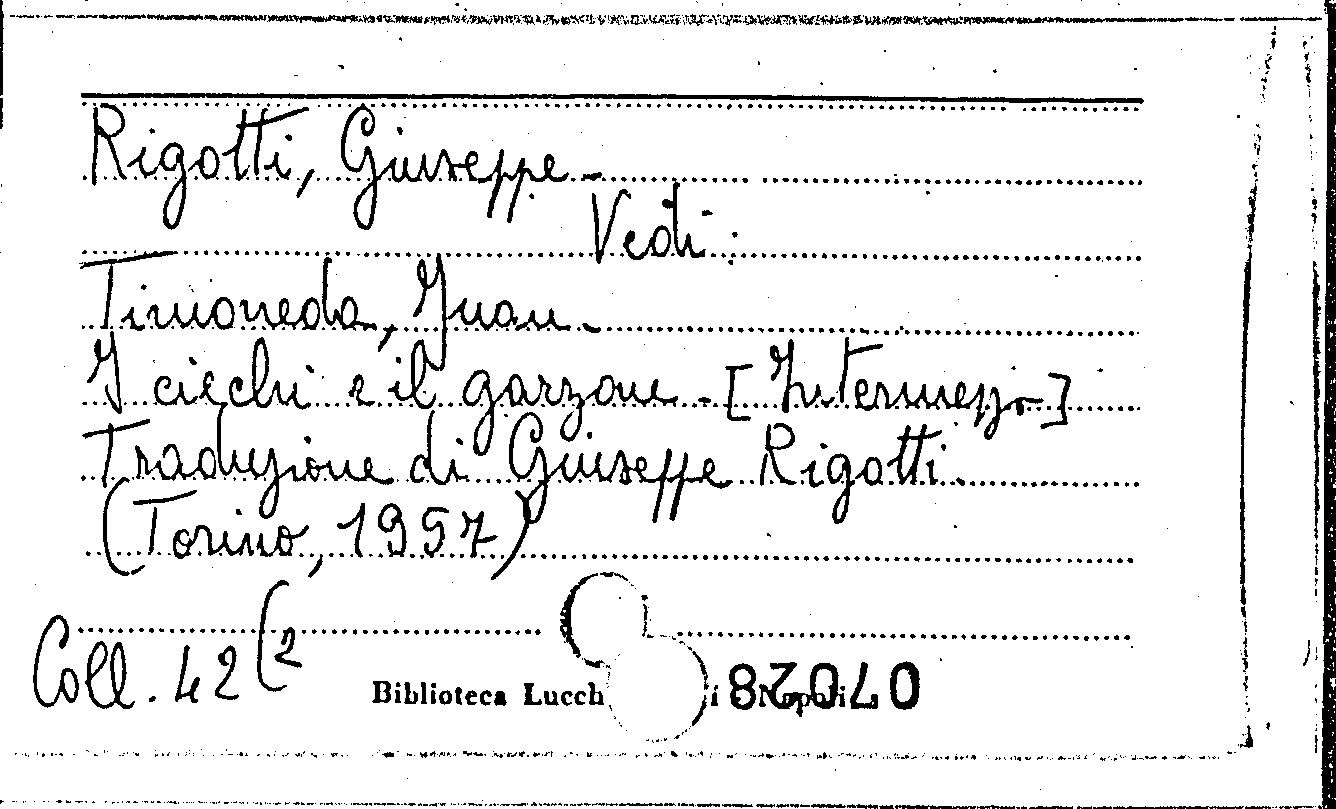 Rigotti, Giuseppe -
Vedi:
Timoneda, Juan -
I ciechi e il garzone - [Intermezzo]
Traduzione di Giuseppe Rigotti.
(Torino, 1957)
Coll. 42(2
Biblioteca Lucch i Napoli